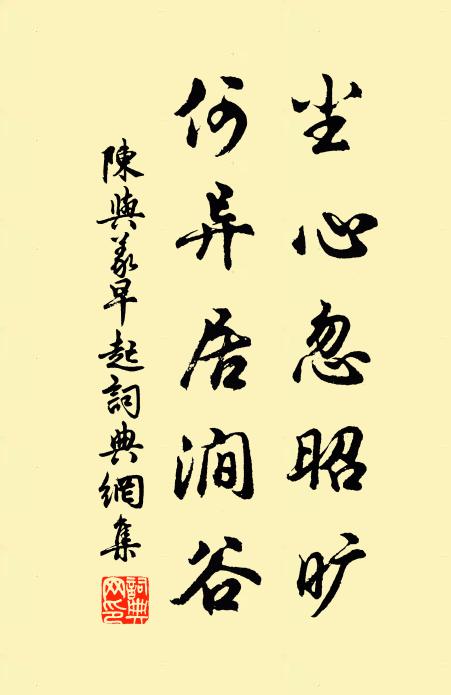 尘心忽昭旷
何异居涧谷
陳與義早起詞典網集
詞典
网印